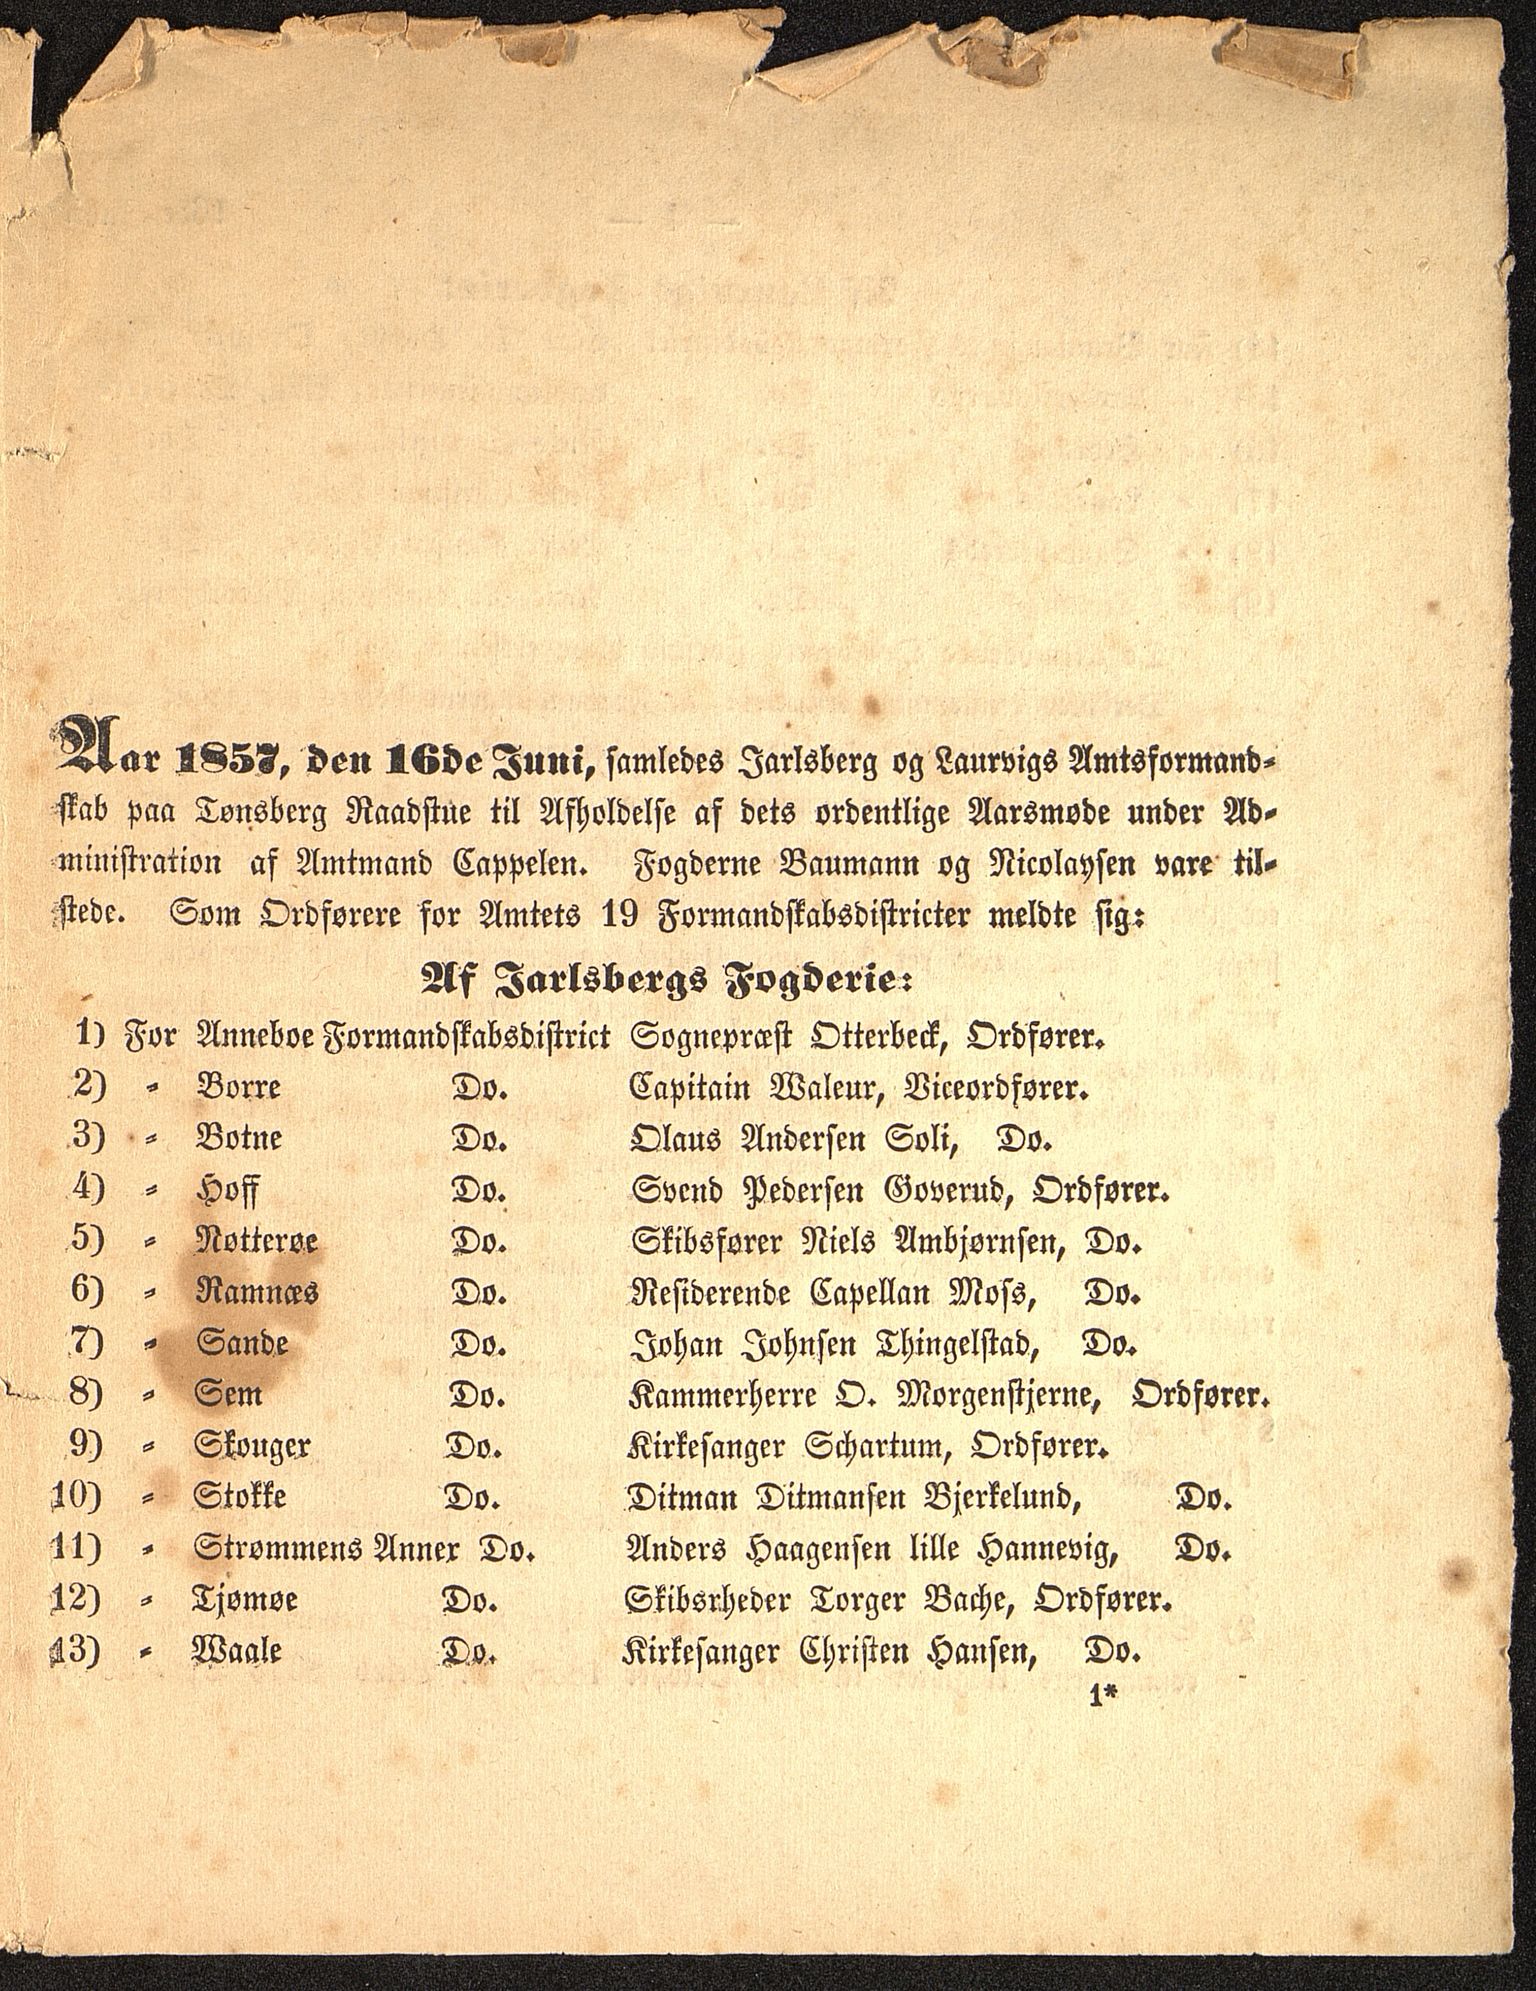 Aar 1857, den 16de Juni, samledes Jarlsberg og Laurvigs Amtsformand-
skab paa Tønsberg Raadstue til Afholdelse af dets ordentlige Aarsmøde under Ad-
ministration af Amtmand Cappelen. Fogderne Baumann og Nicolaysen vare til-
stede. Som Ordførere for Amtets 19 Formandskabsdistricter meldte sig:
Af Jarlsbergs Fogderie:
1) For Anneboe Formandskabsdistrict Sognepræst Otterbeck, Ordfører.
2) - Borre Do. Capitain Waleur, Viceordfører.
3) - Botne Do. Olaus Andersen Soli, Do.
4) - Hoff Do. Svend Pedersen Goverud, Ordfører.
5) - Nøtterøe Do. Skibsfører Niels Ambjørnsen, Do.
6) - Ramnæs Do. Residerende Capellan Moss, Do.
7) - Sande Do. Johan Johnsen Thingelstad, Do.
8) - Sem Do. Kammerherre O. Morgenstjerne, Ordfører.
9) - Skouger Do. Kirkesanger Schartum, Ordfører.
10) - Stokke Do. Ditman Ditmansen Bjerkelund, Do.
11) - Strømmens Annex Do. Anders Haagensen lille Hannevig, Do.
12) - Tjømøe Do. Skibsrheder Torger Bache, Ordfører.
13) - Waale Do. Kirkesanger Christen Hansen, Do.
1*